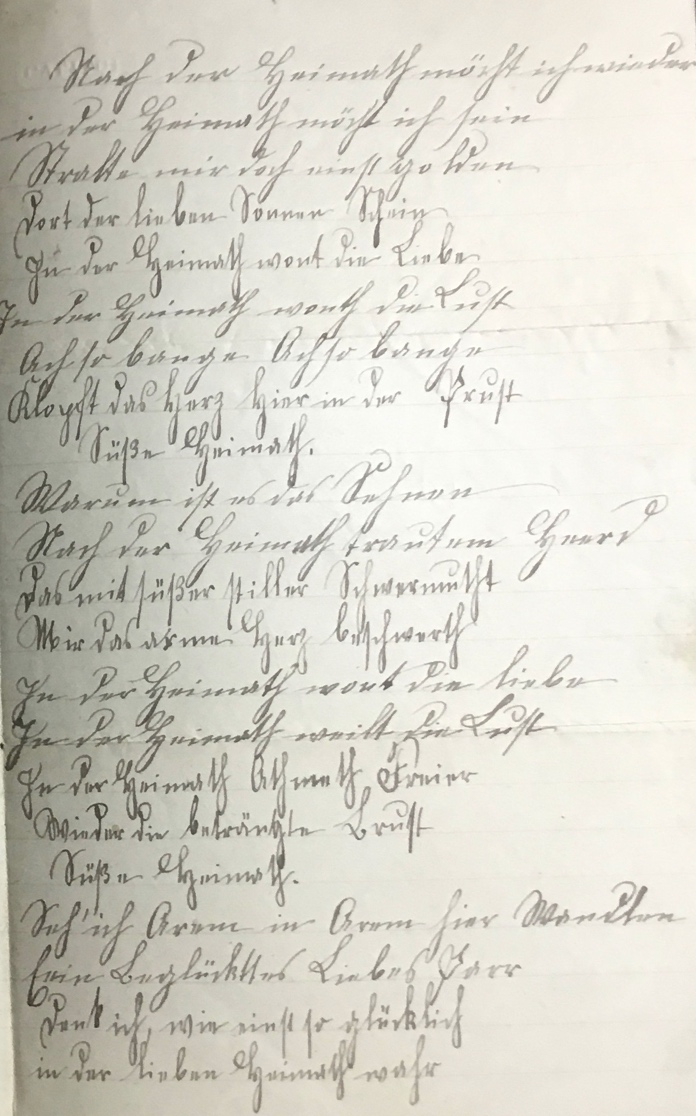 Nach der Heimath möcht ich wieder
in der Heimath möcht ich sein
Stralte mir doch einst golden
Dort der lieben Sonnen Schein
In der Heimath wont die Liebe
In der Heimath wonth die Lust
Ach so bange Ach so bange
Klopft das Herz Hier in der Prust
Süße Heimath.
Warum ist es das Sehnen
Nach der Heimath trautem Heerd
Das mit süßer stiller Schwermutht
Mir das arme Herz beschwerth
In der Heimath wont die liebe
In der Heimath weilt die Lust
In der Heimath Athmeth Freier
Wieder die beträngte Brust
Süße Heimath.
Seh' ich Arem in Arem hier Wandlen
Ein Beglückttes Liebes Parr
Denk ich, wie einst so glücklich
in der lieben Heimath wahr